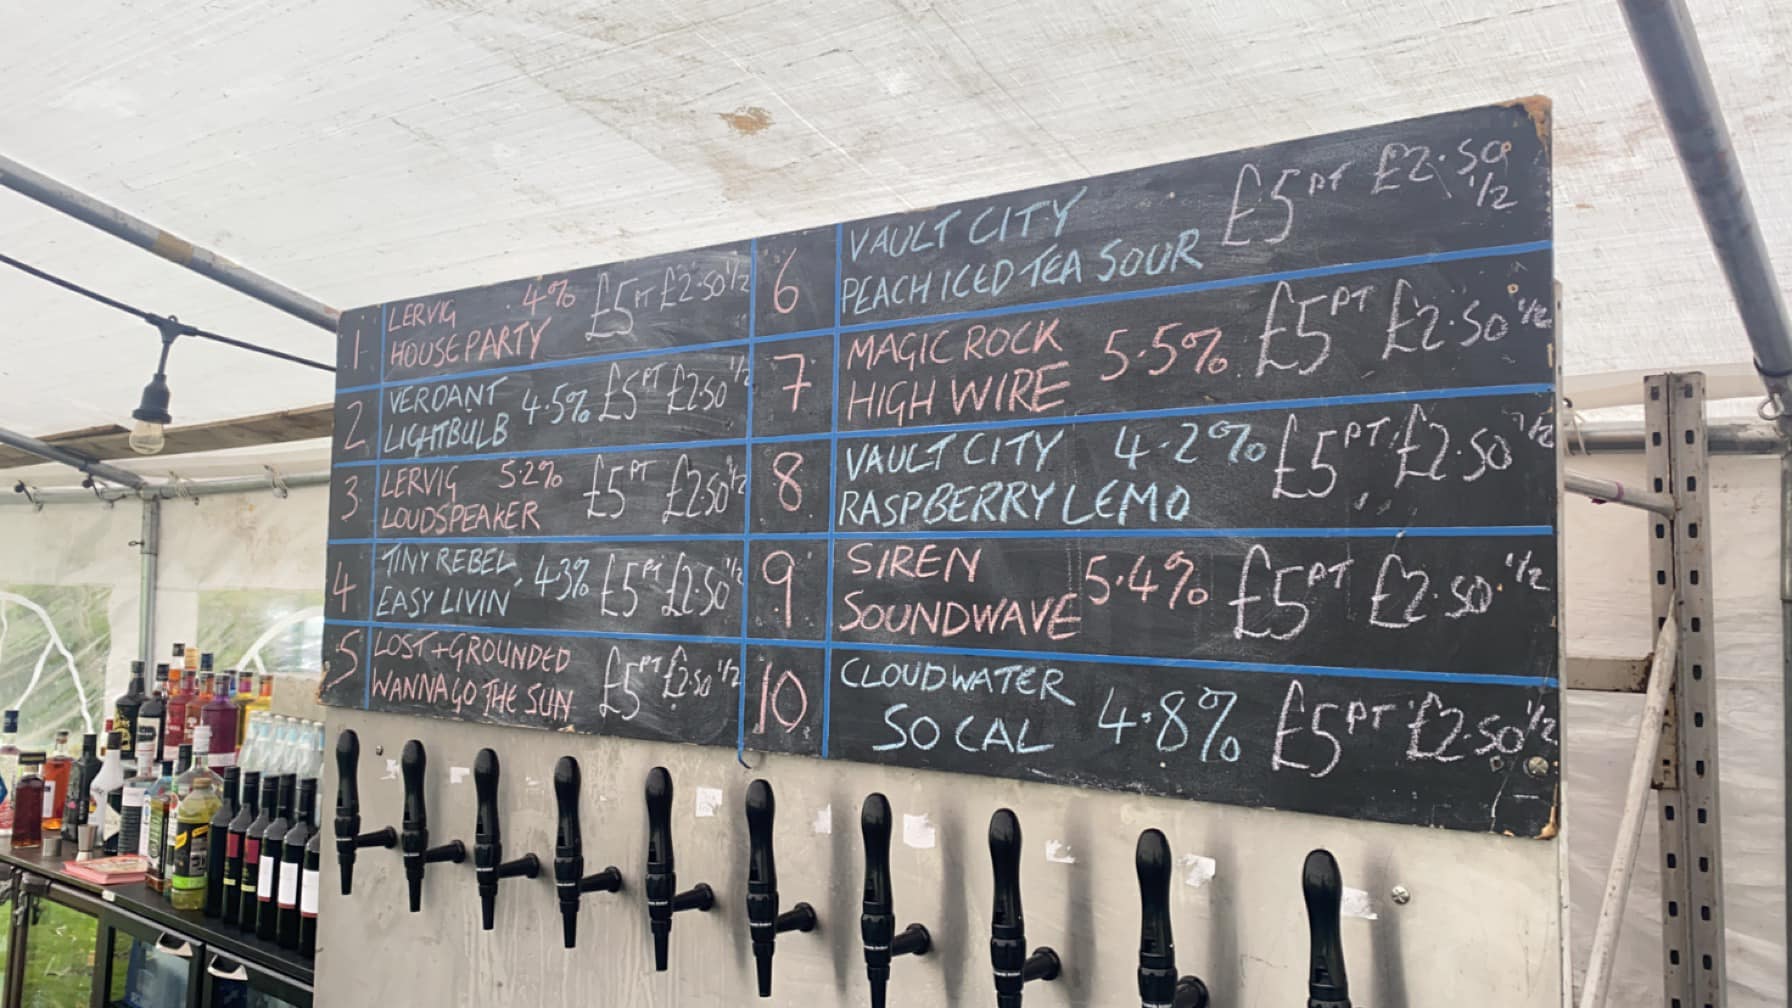 1 LERVIG 4% £5 PT £2.50 1/2
HOUSE PARTY
2 VERDANT 4.5% £5 PT £2.50 1/2
LIGHTBULB
3 LERVIG 5.2% £5 PT £2.50 1/2
LOUDSPEAKER
4 TINY REBEL 4.3% £5 PT £2.50 1/2
EASY LIVIN
5 LOST + GROUNDED £5 PT £2.50 1/2
WANNA GO THE SUN
6 VAULT CITY £5 PT £2.50 1/2
PEACH ICED TEA SOUR
7 MAGIC ROCK 5.5% £5 PT £2.50 1/2
HIGH WIRE
8 VAULT CITY 4.2% £5 PT £2.50 1/2
RASPBERRY LEMO
9 SIREN 5.4% £5 PT £2.50 1/2
SOUNDWAVE
10 CLOUDWATER 4.8% £5 PT £2.50 1/2
SO CAL